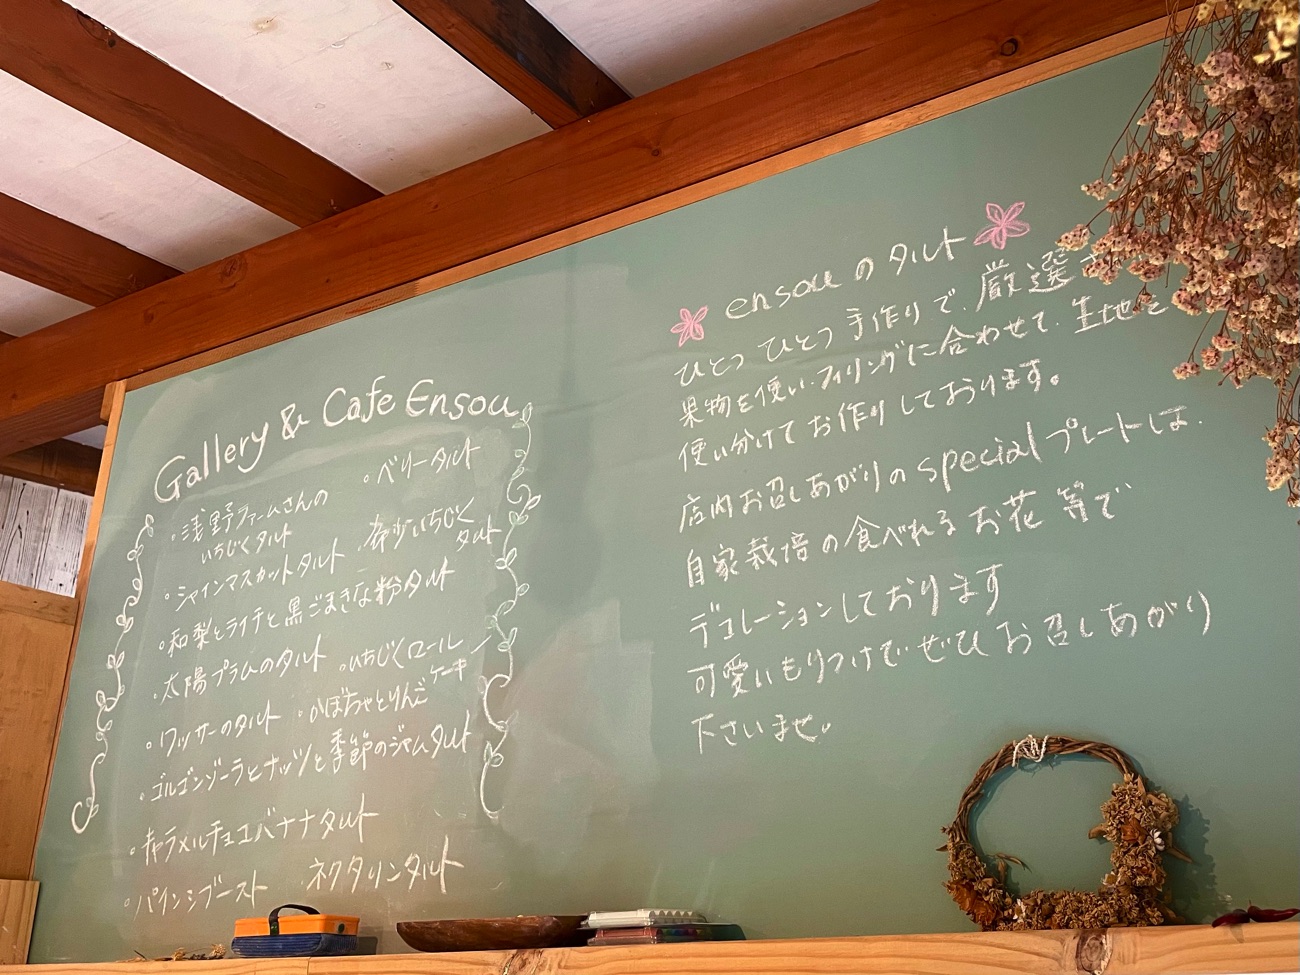 Gallery & Cafe Ensou
・浅野ファームさんの
いちじくタルト
・ベリータルト
・シャインマスカットタルト
・希少いちじく
タルト
・和梨とライチと黒ごまきな粉タルト
・太陽プラムのタルト
・いちじくロール
ケーキ
・ワッサーのタルト
・かぼちゃとりんご
・ゴルゴンゾーラとナッツと季節のジャムタルト
・キャラメルチョコバナナタルト
・パインシブースト
・ネクタリンタルト
ensouのタルト
ひとつひとつ手作りで、厳選さ
果物を使い、フィリングに合わせて、生地を
使い分けてお作りしております。
店内お召しあがりのspecialプレートは、
自家栽培の食べれるお花等で
デコレーションしております
可愛いもりつけでぜひお召しあがり
下さいませ。